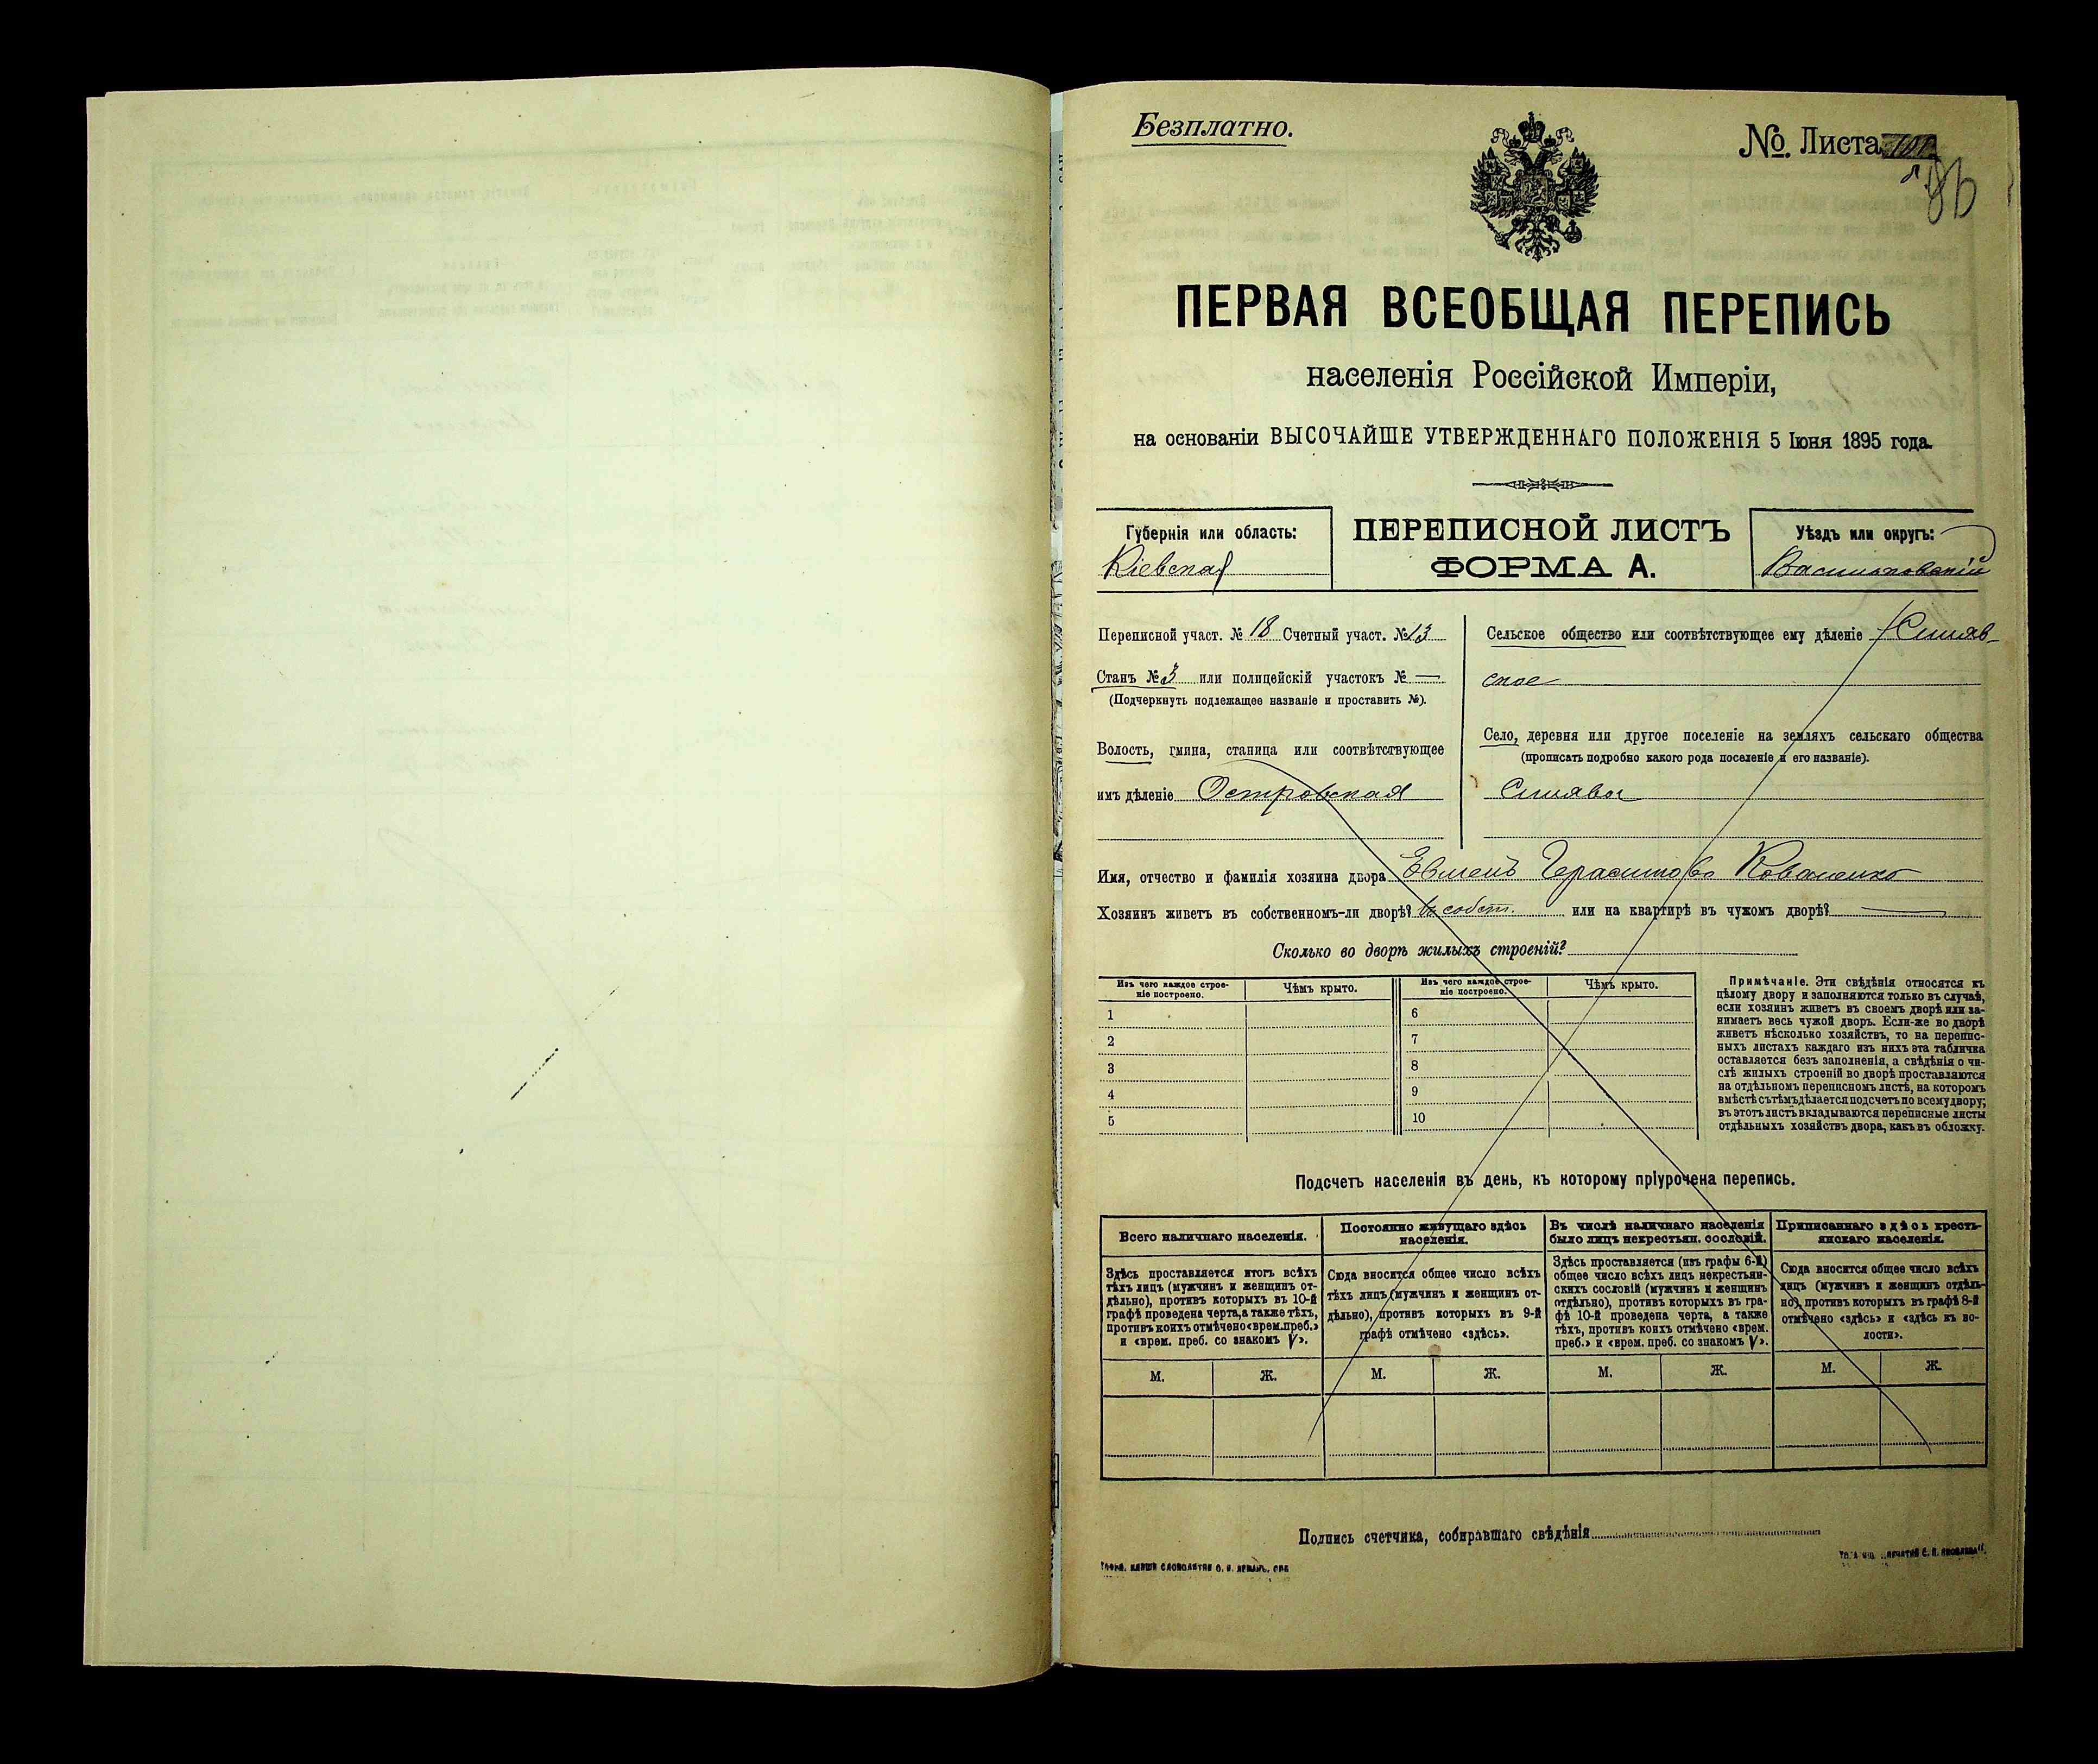 Безплатно.
№. Листа
ПЕРВАЯ ВСЕОБЩАЯ ПЕРЕПИСЬ
населенія Россійской Имперіи,
на основаніи ВЫСОЧАЙШЕ УТВЕРЖДЕННАГО ПОЛОЖЕНІЯ 5 Іюня 1895 года.
Губернія или область:
Кіевская
ПЕРЕПИСНОЙ ЛИСТЪ
ФОРМА А.
Уѣздъ или округъ:
Васильковскій
Переписной участ. № 18 Счетный участ. № 13
Станъ № 3 или полицейскій участокъ № —
(Подчеркнуть подлежащее названіе и проставить №).
Волость, гмина, станица или соотвѣтствующее
имъ дѣленіе Островская
Сельское общество или соотвѣтствующее ему дѣленіе Синяв-
ское
Село, деревня или другое поселеніе на земляхъ сельскаго общества
(прописать подробно какого рода поселеніе и его названіе).
Синява
Имя, отчество и фамилія хозяина двора Евменъ Герасимовъ Коваленко
Хозяинъ живетъ въ собственномъ-ли дворѣ? въ собст. или на квартирѣ въ чужомъ дворѣ? —
Сколько во дворѣ жилыхъ строеній?
Изъ чего каждое строе-
ніе построено.
Чѣмъ крыто.
Изъ чего каждое строе-
ніе построено.
Чѣмъ крыто.
1
2
3
4
5
6
7
8
9
10
Примѣчаніе. Эти свѣдѣнія относятся къ
цѣлому двору и заполняются только въ случаѣ,
если хозяинъ живетъ въ своемъ дворѣ или за-
нимаетъ весь чужой дворъ. Если-же во дворѣ
живетъ нѣсколько хозяйствъ, то на перепис-
ныхъ листахъ каждаго изъ нихъ эта табличка
оставляется безъ заполненія, а свѣдѣнія о чи-
слѣ жилыхъ строеній во дворѣ проставляются
на отдѣльномъ переписномъ листѣ, на которомъ
вмѣстѣ съ тѣмъ дѣлается подсчетъ по всему двору;
въ этотъ листъ вкладываются переписные листы
отдѣльныхъ хозяйствъ двора, какъ въ обложку.
Подсчетъ населенія въ день, къ которому пріурочена перепись.
Всего наличнаго населенія.
Здѣсь проставляется итогъ всѣхъ
тѣхъ лицъ (мужчинъ и женщинъ от-
дѣльно), противъ которыхъ въ 10-й
графѣ проведена черта, а также тѣхъ,
противъ коихъ отмѣчено «врем. преб.»
и «врем. преб. со знакомъ V».
М. Ж.
Постоянно живущаго здѣсь
населенія.
Сюда вносится общее число всѣхъ
тѣхъ лицъ (мужчинъ и женщинъ от-
дѣльно), противъ которыхъ въ 9-й
графѣ отмѣчено «здѣсь».
М. Ж.
Въ числѣ наличнаго населенія
было лицъ некрестьян. сословій.
Здѣсь проставляется (изъ графы 6-й)
общее число всѣхъ лицъ некрестьян-
скихъ сословій (мужчинъ и женщинъ
отдѣльно), противъ которыхъ въ гра-
фѣ 10-й проведена черта, а также
тѣхъ, противъ коихъ отмѣчено «врем.
преб.» и «врем. преб. со знакомъ V».
М. Ж.
Приписаннаго здѣсь кресть-
янскаго населенія.
Сюда вносится общее число всѣхъ
лицъ (мужчинъ и женщинъ отдѣль-
но), противъ которыхъ въ графѣ 8-й
отмѣчено «здѣсь» и «здѣсь къ во-
лости».
М. Ж.
Подпись счетчика, собиравшаго свѣдѣнія